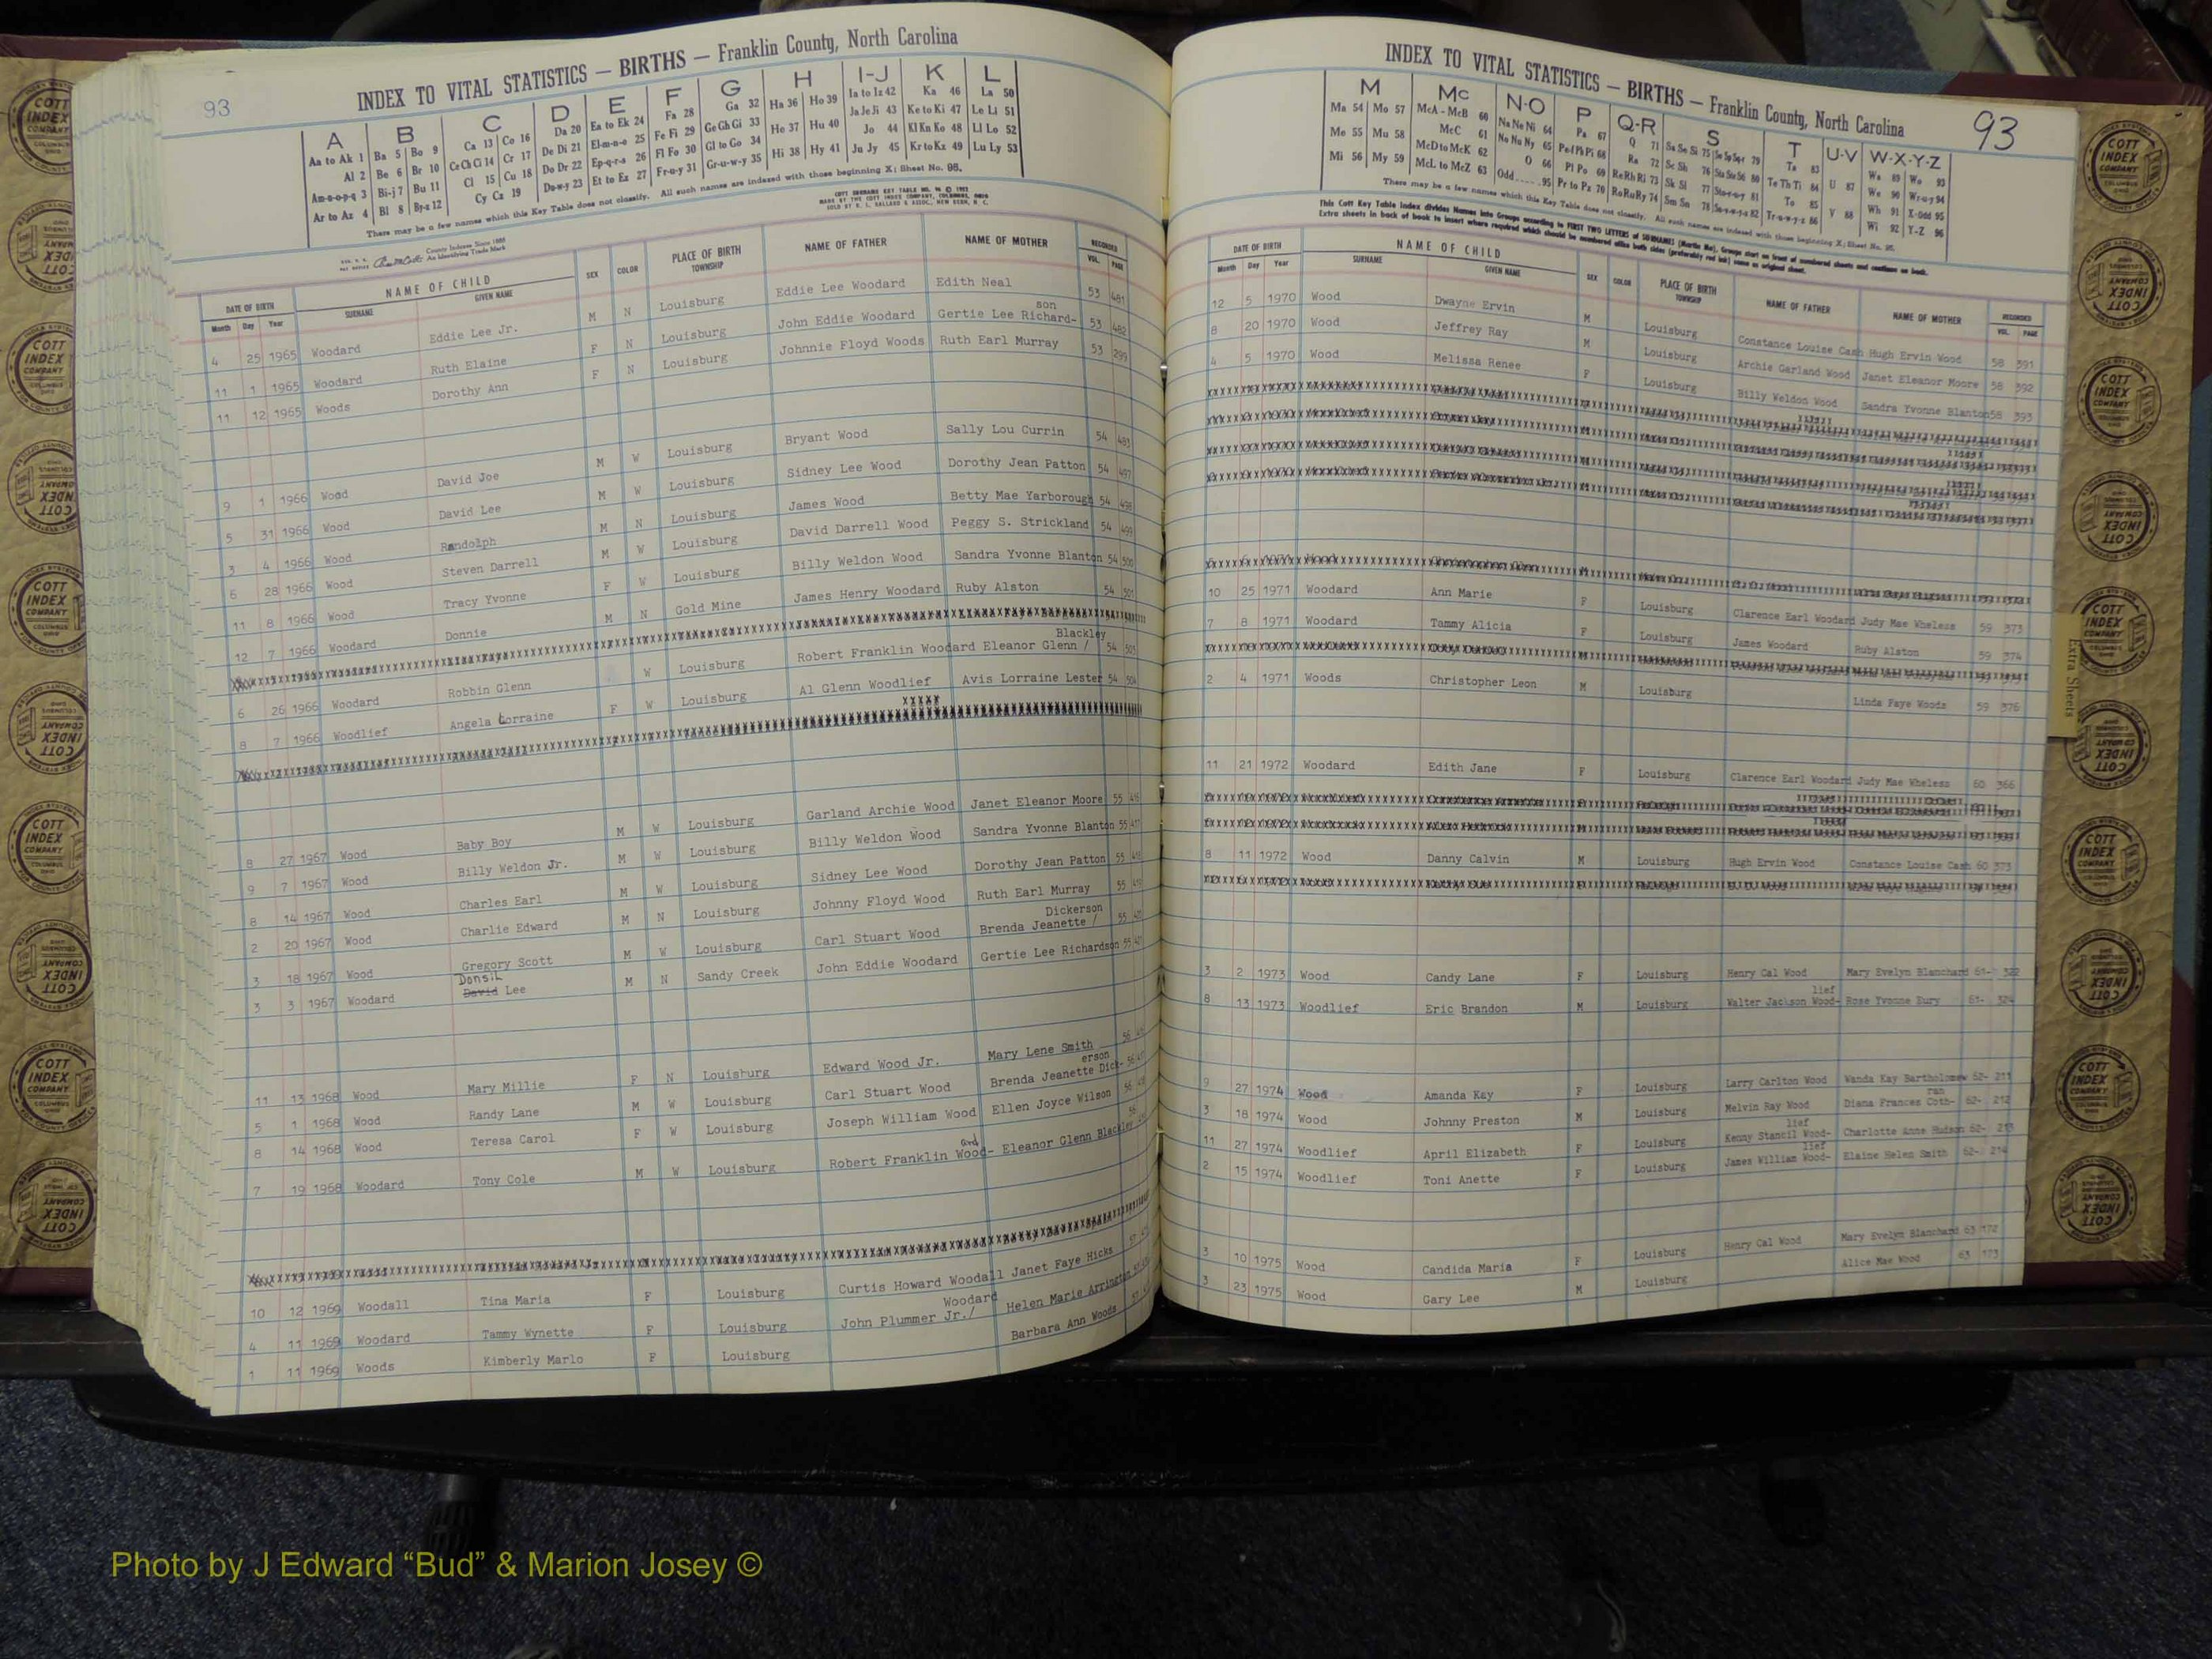 93
INDEX TO VITAL STATISTICS — BIRTHS — Franklin County, North Carolina
A B C D E F G H I-J K L
Aa to Ak 1 Ba 5 Bo 9 Ca 13 Co 16 Da 20 Ea to Ek 24 Fa 28 Ga 32 Ha 36 Ho 39 Ia to Iz 42 Ka 46 La 50
Al 2 Be 6 Br 10 Ce Ch Ci 14 Cr 17 De Di 21 El-m-n-o 25 Fe Fi 29 Ge Gh Gi 33 He 37 Hu 40 Ja Je Ji 43 Ke to Ki 47 Le Li 51
Am-n-o-p-q 3 Bi-j 7 Bu 11 Cl 15 Cu 18 Do Dr 22 Ep-q-r-s 26 Fl Fo 30 Gl to Go 34 Hi 38 Hy 41 Jo 44 Kl Kn Ko 48 Ll Lo 52
Ar to Az 4 Bl 8 By-z 12 Cy Cz 19 Du-w-y 23 Et to Ez 27 Fr-u-y 31 Gr-u-w-y 35 Ju Jy 45 Kr to Kz 49 Lu Ly 53
There may be a few names which this Key Table does not classify. All such names are indexed with those beginning X; Sheet No. 95.
DATE OF BIRTH NAME OF CHILD SEX COLOR PLACE OF BIRTH NAME OF FATHER NAME OF MOTHER RECORDED
Month Day Year SURNAME GIVEN NAME TOWNSHIP VOL. PAGE
4 25 1965 Woodard Eddie Lee Jr. M N Louisburg Eddie Lee Woodard Edith Neal 53 481
11 1 1965 Woodard Ruth Elaine F N Louisburg John Eddie Woodard Gertie Lee Richard-son 53 482
11 12 1965 Woods Dorothy Ann F N Louisburg Johnnie Floyd Woods Ruth Earl Murray 53 299
9 1 1966 Wood David Joe M W Louisburg Bryant Wood Sally Lou Currin 54 483
5 31 1966 Wood David Lee M W Louisburg Sidney Lee Wood Dorothy Jean Patton 54 497
3 4 1966 Wood Randolph M N Louisburg James Wood Betty Mae Yarborough 54 498
6 28 1966 Wood Steven Darrell M W Louisburg David Darrell Wood Peggy S. Strickland 54 499
11 8 1966 Wood Tracy Yvonne F W Louisburg Billy Weldon Wood Sandra Yvonne Blanton 54 500
12 7 1966 Woodard Donnie M N Gold Mine James Henry Woodard Ruby Alston 54 501
6 26 1966 Woodard Robbin Glenn W Louisburg Robert Franklin Woodard Eleanor Glenn / Blackley 54 503
8 7 1966 Woodlief Angela Lorraine F W Louisburg Al Glenn Woodlief Avis Lorraine Lester 54 504
8 27 1967 Wood Baby Boy M W Louisburg Garland Archie Wood Janet Eleanor Moore 55
9 7 1967 Wood Billy Weldon Jr. M W Louisburg Billy Weldon Wood Sandra Yvonne Blanton 55
8 14 1967 Wood Charles Earl M W Louisburg Sidney Lee Wood Dorothy Jean Patton 55
2 20 1967 Wood Charlie Edward M N Louisburg Johnny Floyd Wood Ruth Earl Murray 55
3 18 1967 Wood Gregory Scott M W Louisburg Carl Stuart Wood Brenda Jeanette / Dickerson 55
3 3 1967 Woodard David Lee M N Sandy Creek John Eddie Woodard Gertie Lee Richardson 55
11 13 1968 Wood Mary Millie F N Louisburg Edward Wood Jr. Mary Lene Smith 56
5 1 1968 Wood Randy Lane M W Louisburg Carl Stuart Wood Brenda Jeanette Dick-erson 56
8 14 1968 Wood Teresa Carol F W Louisburg Joseph William Wood Ellen Joyce Wilson 56
7 19 1968 Woodard Tony Cole M W Louisburg Robert Franklin Wood-ard Eleanor Glenn Blackley 56
10 12 1969 Woodall Tina Maria F Louisburg Curtis Howard Woodall Janet Faye Hicks 57
4 11 1969 Woodard Tammy Wynette F Louisburg John Plummer Jr./ Woodard Helen Marie Arrington
1 11 1969 Woods Kimberly Marlo F Louisburg Barbara Ann Woods
INDEX TO VITAL STATISTICS — BIRTHS — Franklin County, North Carolina
93
M Mc N-O P Q-R S T U-V W-X-Y-Z
Ma 54 Mo 57 McA - McB 60 Na Ne Ni 64 Pa 67 Q 71 Sa Se Si 75 Sp Sq-r 79 Ta 83 Wa 89 Wo 93
Me 55 Mu 58 McC 61 No Nu Ny 65 Pe-f Ph Pi 68 Ra 72 Sc Sh 76 Sta Ste Sti 80 Te Th Ti 84 U 87 We 90 Wr-u-y 94
Mi 56 My 59 McD to McK 62 O 66 Pl Po 69 Re Rh Ri 73 Sk Sl 77 Sto-r-u-y 81 To 85 V 88 Wh 91 X-Odd 95
McL to McZ 63 Odd 95 Pr to Pz 70 Ro Ru Ry 74 Sm Sn 78 Su-v-w-y-z 82 Tr-u-w-y-z 86 Wi 92 Y-Z 96
There may be a few names which this Key Table does not classify. All such names are indexed with those beginning X; Sheet No. 95.
This Cott Key Table Index divides Names into Groups according to FIRST TWO LETTERS of SURNAMES (Martin Ma). Groups start on front of numbered sheets and continue on back.
Extra sheets in back of book to insert where required which should be numbered alike both sides (preferably red ink) same as original sheet.
DATE OF BIRTH NAME OF CHILD SEX COLOR PLACE OF BIRTH NAME OF FATHER NAME OF MOTHER RECORDED
Month Day Year SURNAME GIVEN NAME TOWNSHIP VOL. PAGE
12 5 1970 Wood Dwayne Ervin M Louisburg Constance Louise Cash Hugh Ervin Wood 58 391
8 20 1970 Wood Jeffrey Ray M Louisburg Archie Garland Wood Janet Eleanor Moore 58 392
4 5 1970 Wood Melissa Renee F Louisburg Billy Weldon Wood Sandra Yvonne Blanton 58 393
10 25 1971 Woodard Ann Marie F Louisburg Clarence Earl Woodard Judy Mae Wheless 59 373
7 8 1971 Woodard Tammy Alicia F Louisburg James Woodard Ruby Alston 59 374
2 4 1971 Woods Christopher Leon M Louisburg Linda Faye Woods 59 376
11 21 1972 Woodard Edith Jane F Louisburg Clarence Earl Woodard Judy Mae Wheless 60 366
8 11 1972 Wood Danny Calvin M Louisburg Hugh Ervin Wood Constance Louise Cash 60 373
3 2 1973 Wood Candy Lane F Louisburg Henry Cal Wood Mary Evelyn Blanchard 61- 322
8 13 1973 Woodlief Eric Brandon M Louisburg Walter Jackson Wood-lief Rose Yvonne Eury 61- 324
9 27 1974 Wood Amanda Kay F Louisburg Larry Carlton Wood Wanda Kay Bartholomew 62- 211
3 18 1974 Wood Johnny Preston M Louisburg Melvin Ray Wood Diana Frances Coth-ran 62- 212
11 27 1974 Woodlief April Elizabeth F Louisburg Kenny Stancil Wood-lief Charlotte Anne Hudson 62- 213
2 15 1974 Woodlief Toni Anette F Louisburg James William Wood-lief Elaine Helen Smith 62- 214
3 10 1975 Wood Candida Maria F Louisburg Henry Cal Wood Mary Evelyn Blanchard 63 172
3 23 1975 Wood Gary Lee M Louisburg Alice Mae Wood 63 173
Extra Sheets
COTT INDEX COMPANY
Photo by J Edward “Bud” & Marion Josey ©